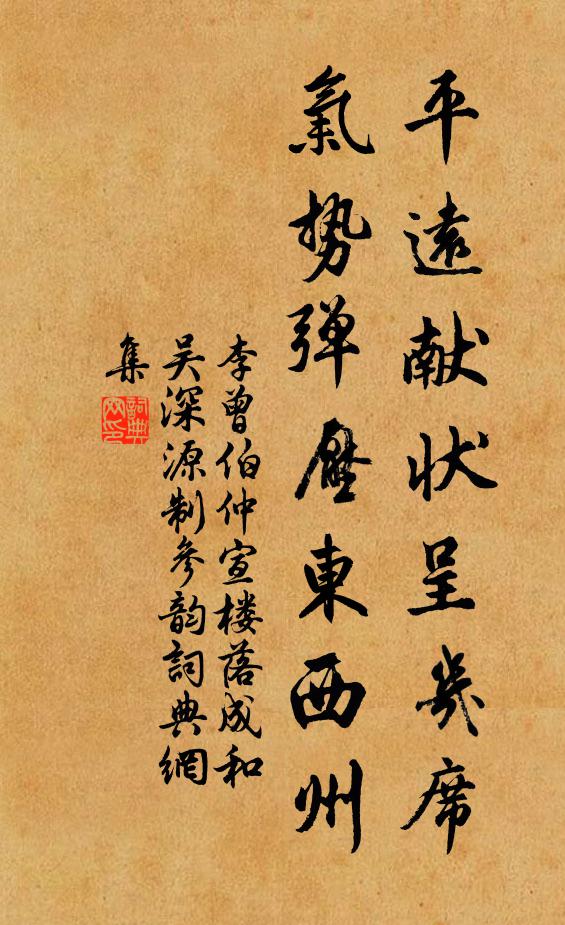 平遠献状呈幾席
氣势弹壓東西州
李曾伯仲宣楼落成和
吴深源制參韵詞典網
集
詞典
网印